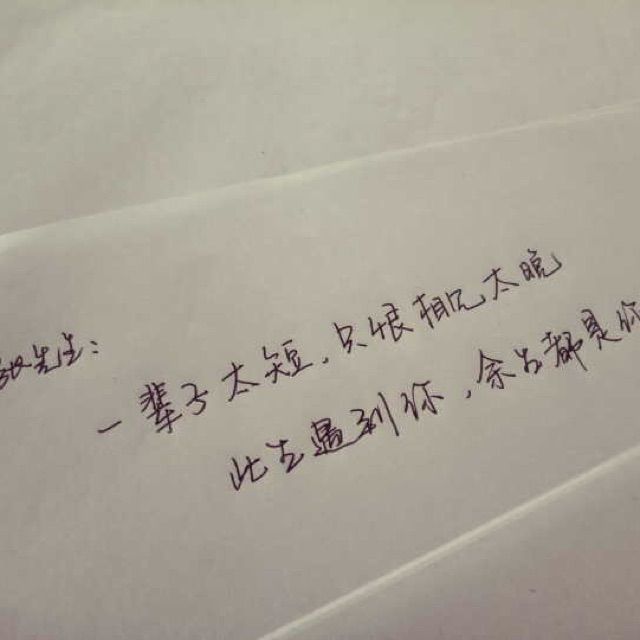 先生：
一辈子太短，只恨相见太晚
此生遇到你，余生都是你